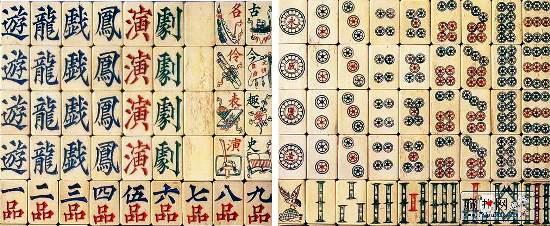 遊 龍 戲 鳳 演 劇 名 古
遊 龍 戲 鳳 演 劇 伶
遊 龍 戲 鳳 演 劇 表 趣
遊 龍 戲 鳳 演 劇 演 史
一 二 三 四 伍 六 七 八 九
品 品 品 品 品 品 品 品 品